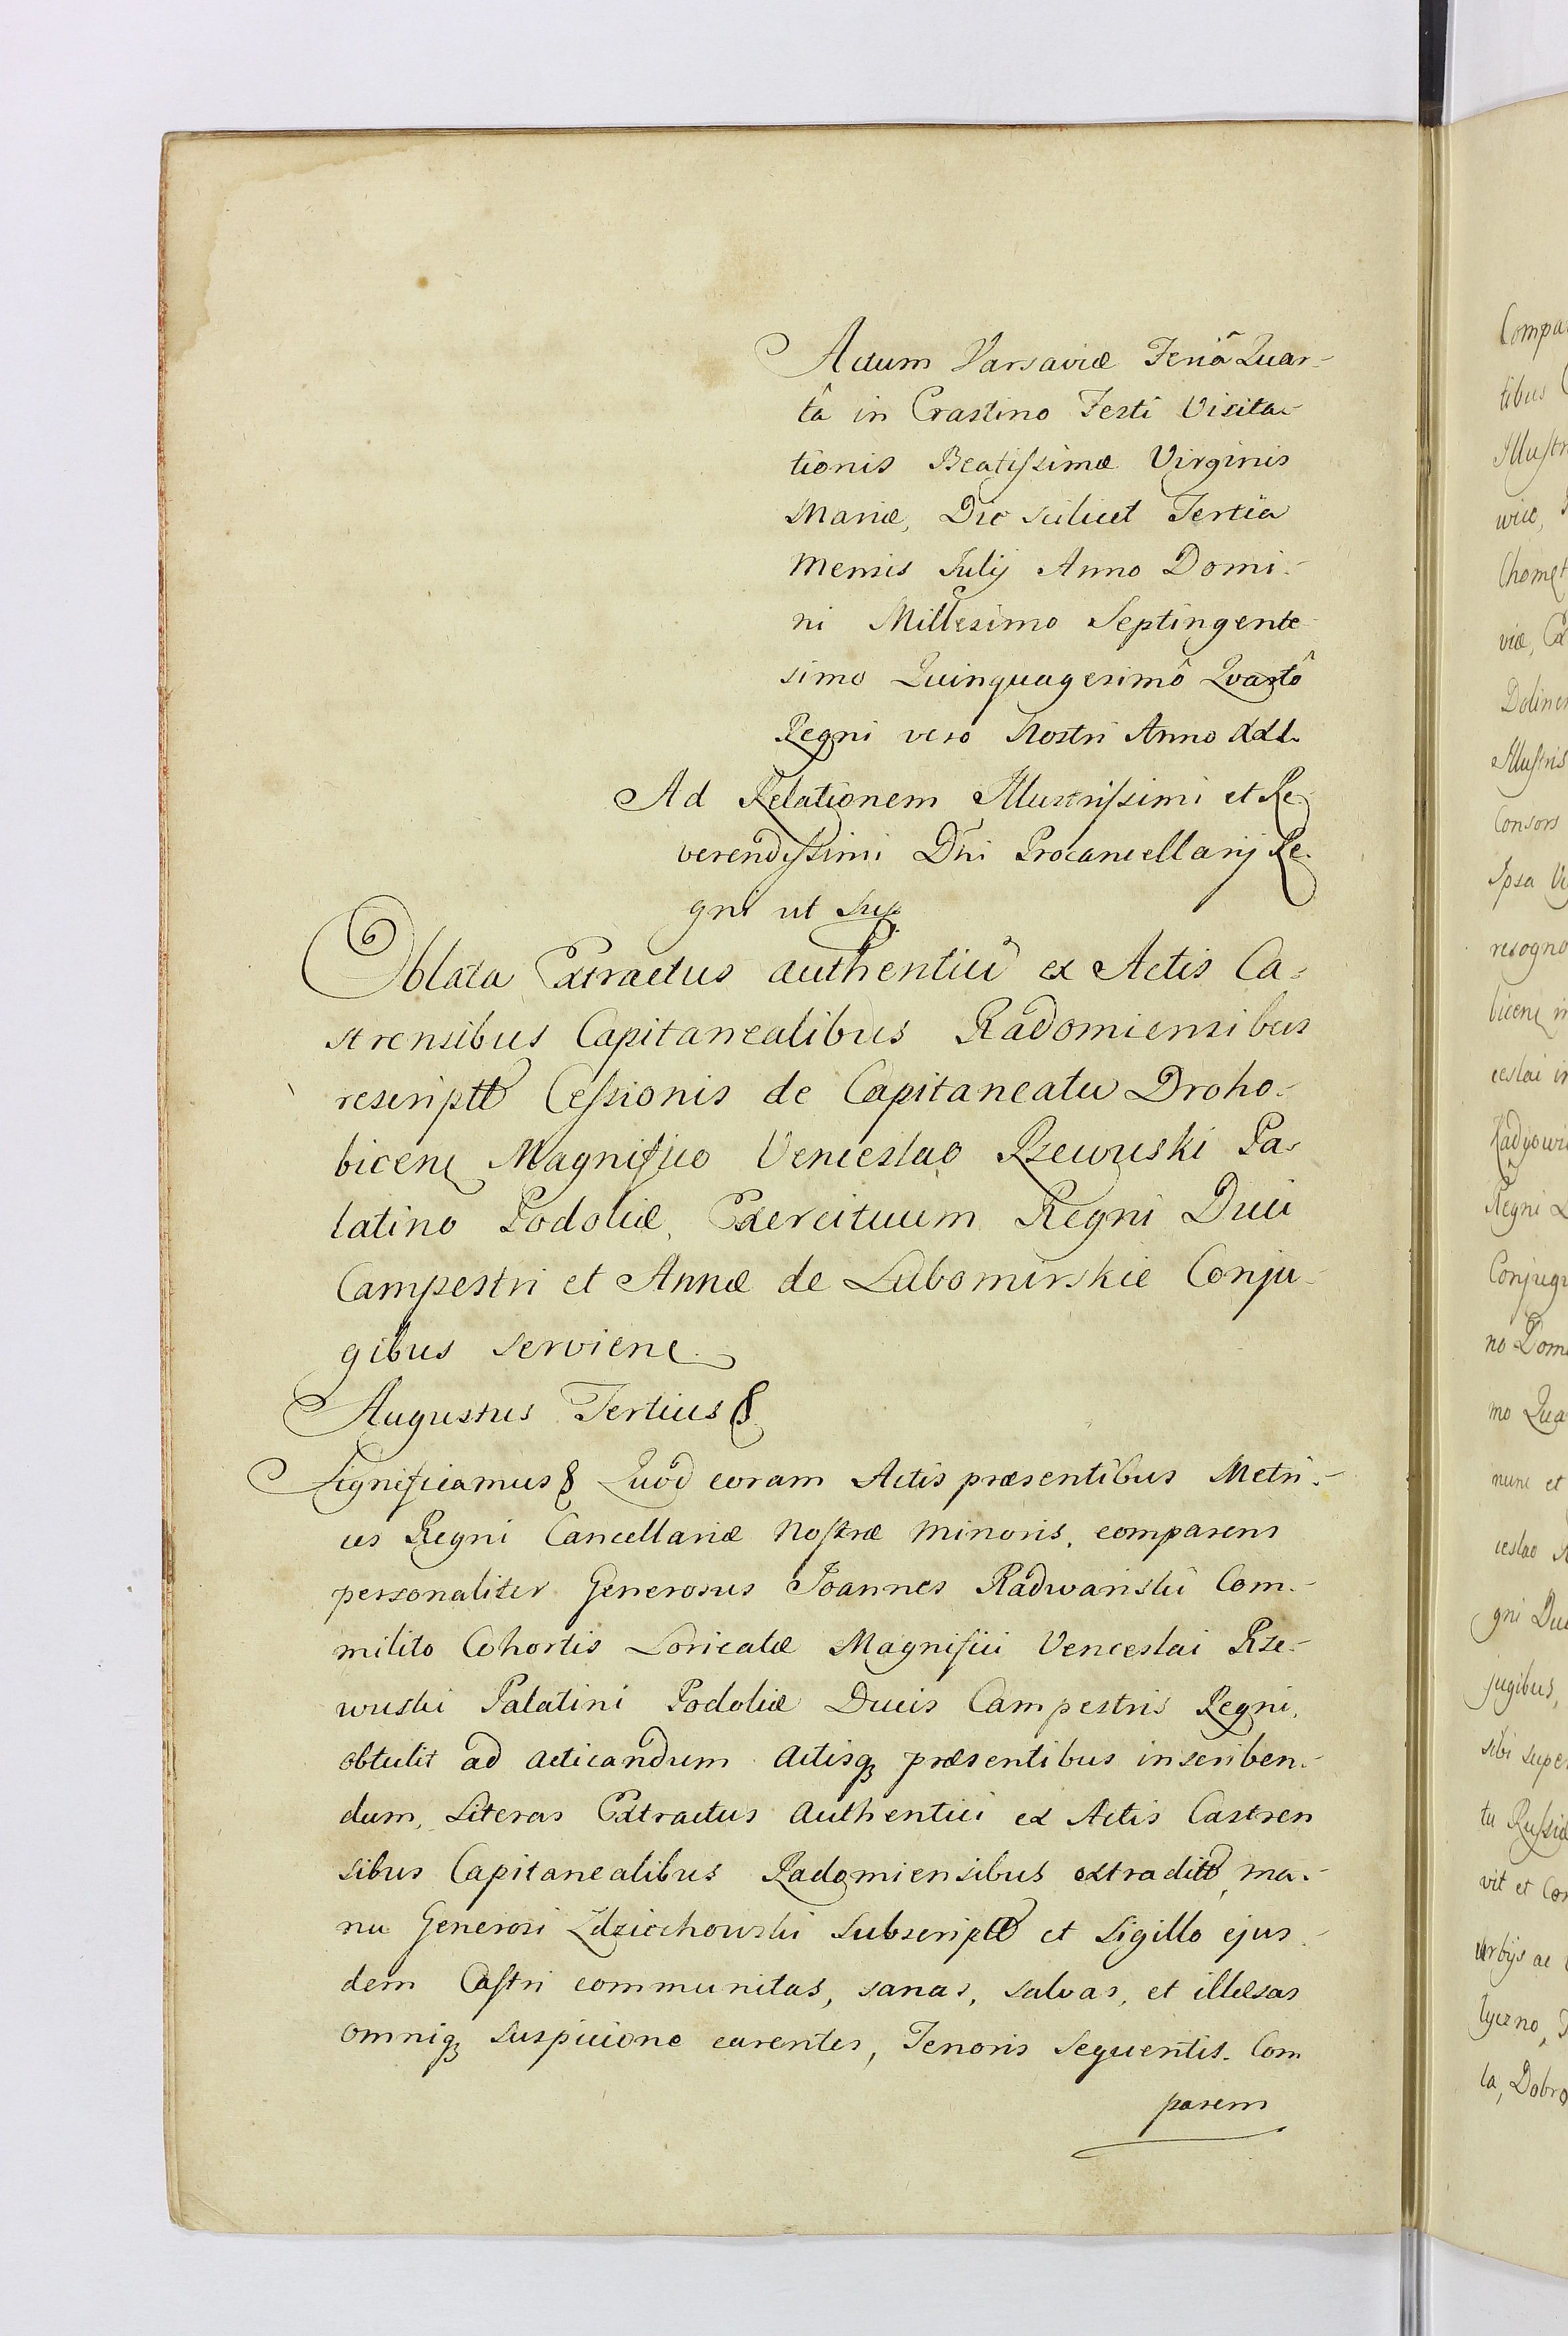 Actum Varsaviæ Feriâ Quar-
tâ in Crastino Festi Visita-
tionis Beatissimæ Virginis
Mariæ, Die scilicet Tertia
Mensis Julij Anno Domi-
ni Millesimo Septingente
simo Quinquagesimô Quartô
Regni vero Nostri Anno XXI.
Ad Relationem Illustrissimi et Re-
verendissimi Dni Procancellarij Re-
gni ut Sup
Oblata Extractus authentici ex Actis Ca-
strensibus Capitanealibus Radomiensibus
rescriptt Cessionis de Capitaneatu Droho-
bicen Magnifico Venceslao Rzewuski Pa-
latino Podoliæ, Exercituum Regni Duci
Campestri et Annæ de Lubomirskie Conju-
gibus servien
Augustus Tertius &
Significamus & Quod coram Actis præsentibus Metri-
ces Regni Cancellariæ Nostræ Minoris, comparens
personaliter Generosus Joannes Radwanski Com-
milito Cohortis Loricatæ Magnifici Venceslai Rze-
wuski Palatini Podoliæ Ducis Campestris Regni,
obtulit ad acticandum Actisq præsentibus inscriben-
dum, Literas Extractus Authentici ex Actis Castren
sibus Capitanealibus Radomiensibus extraditt, ma-
nu Generosi Zdziechowski Subscriptt et Sigillo ejus-
dem Castri communitas, sanas, salvas, et illæsas
omniq suspicione carentes, Tenoris Sequentis. Com
parens
Compa
tibus
Illustr
wice,
Chomęt
viæ, Ex
Doliner
Illustris
Consors
Ipsa
recogno
bicen in
ceslai
Regni
Conjugu
no Domi
mo Qua
nunc et
ceslao
gni Duc
jugibus,
sibi super
tu Russiæ
vit et Con
urbijs ac
la, Dobro